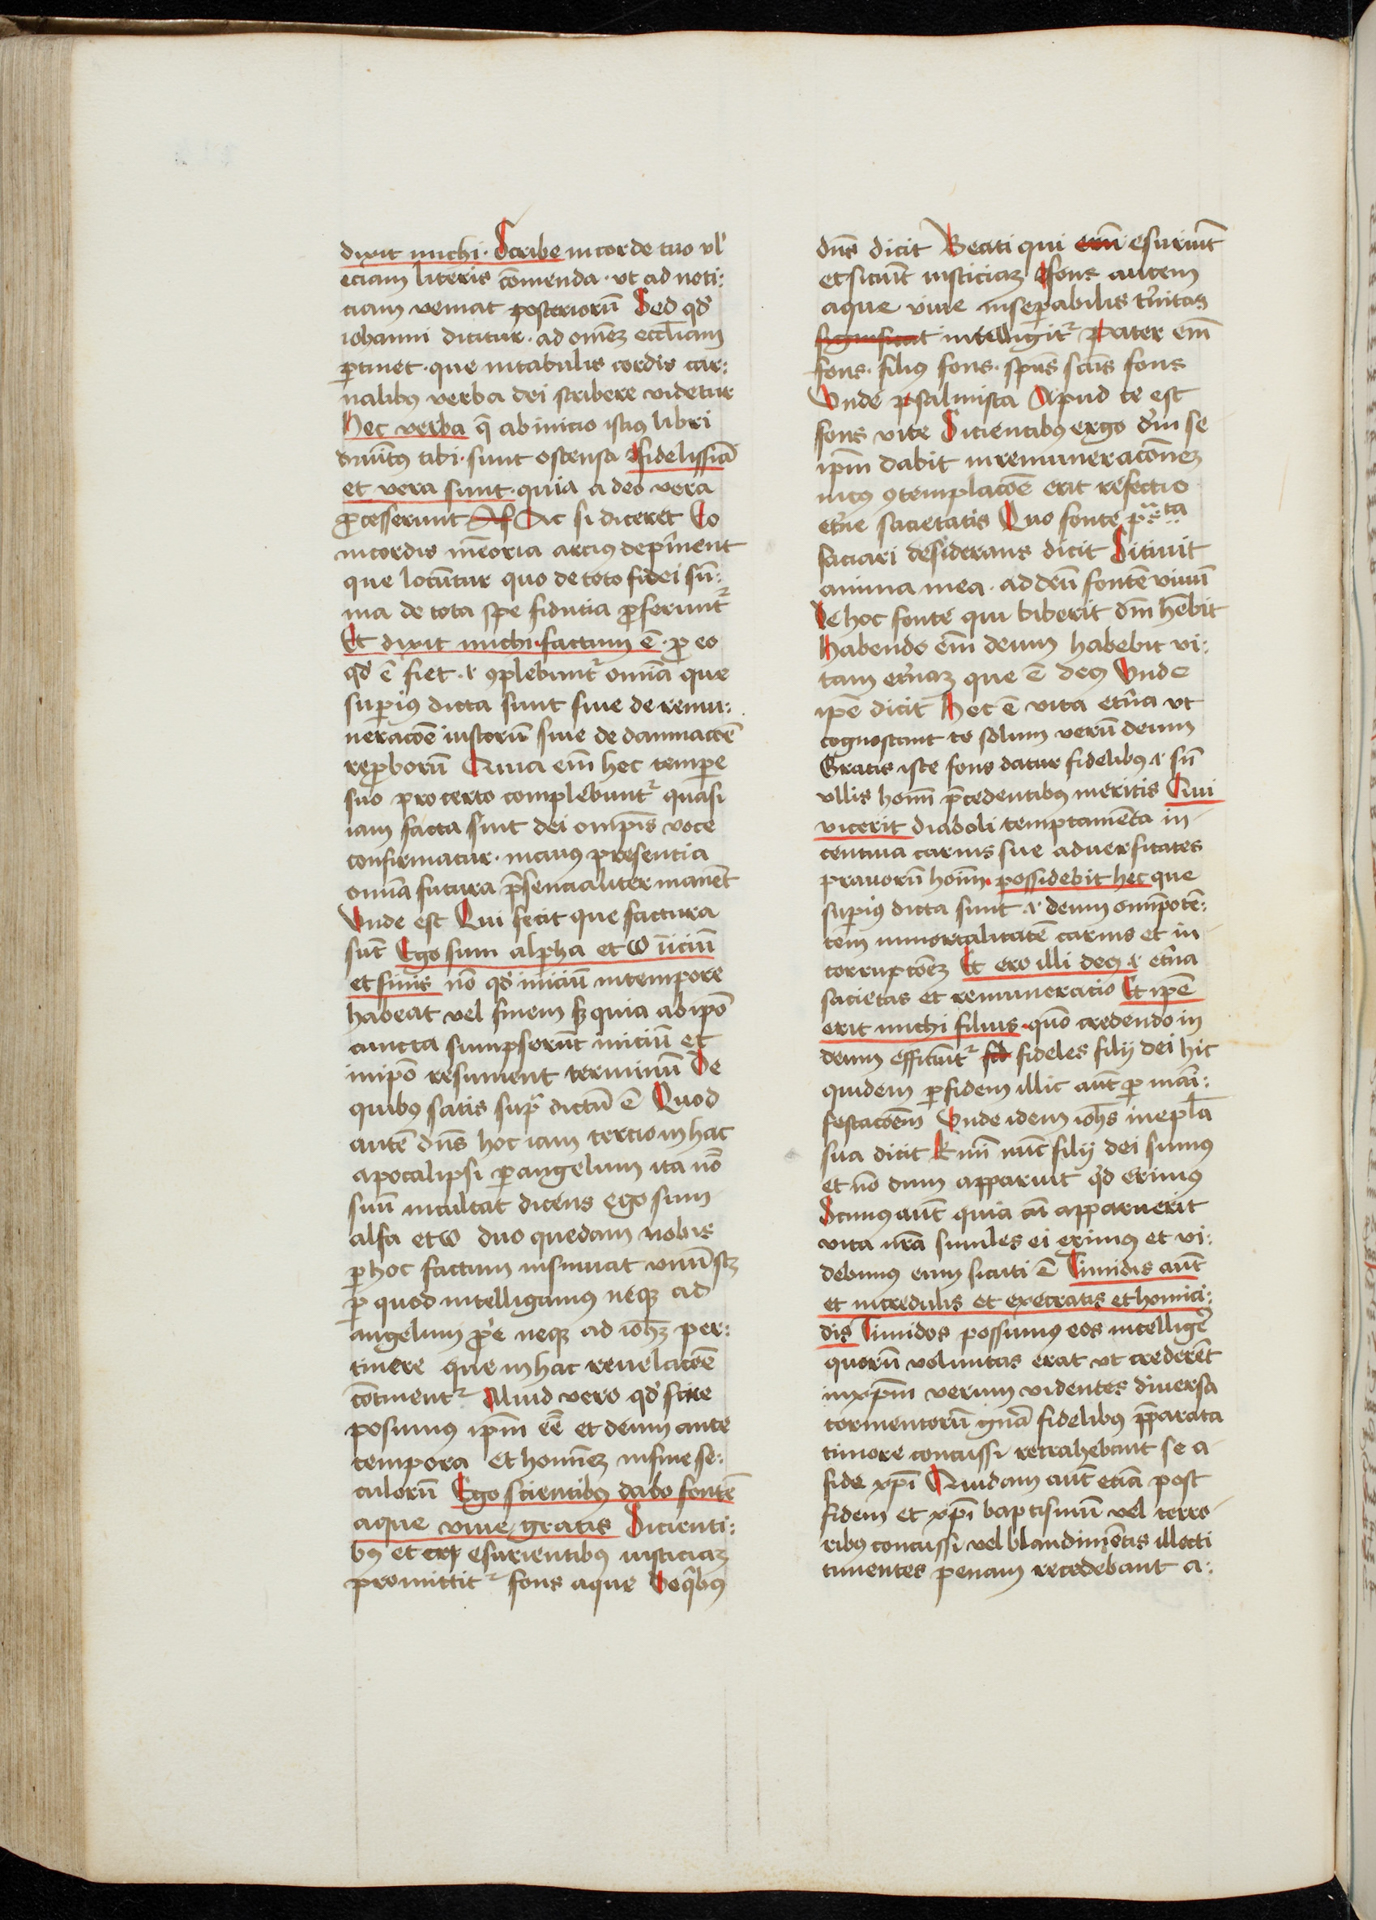 dixit michi · Scribe in corde tuo vl'
eciam literis co̅menda · vt ad noti:
ciam veniat posterioru̅ Sed qd'
iohanni dicitur · ad omne̅ eccl'iam
p̲tinet · que in tabulis cordis car:
nalibus verba dei scribere videtur
Hec verba q̅ ab inicio istius libri
tibi · sunt ostensa fidelissi̅a
et vera sunt · quia a deo vera
p̲cesserunt Af Ac si diceret Eo
in cordis me̅oria arcius dep̲ment
que locu̅tur quo de toto fidei su̅:
ma de tota spe fiducia p̲ferunt᷑
Et dixit michi · factum e̅ · p̲ eo
qd' e̅ fiet · ⁊ ꝯplebunt᷑ omi̅a que
sup̲ius dicta sunt siue de remu:
neraco̅e iustoru̅ siue de damnaco̅e
rep̲boru̅ Quia em̅ hec temp̲e
suo pro certo complebunt᷑ quasi
iam facta sint dei omp̅is voce
confirmatur · in cuius presentia
omi̅a futura p̅sencialiter mane̅t
Vnde est Qui fecit que factura
su̅t Ego sum alpha et w i̅iciu̅
et finis no̅ qd' iniciu̅ in tempore
habeat vel finem sꝫ quia ab ip̅o
cuncta sumpseru̅t iniciu̅ et
in ip̅o resument terminu̅ De
quibus satis sup᷑ dictu̅ e̅ Quod
aute̅ dn̅s hoc iam tercio in hac
apocalipsi p̲ angelum ita no̅
suu̅ inculcat dicens ego sum
alfa et w duo quedam nobis
p̲ hoc factum insinuat vnu̅ scꝫ
p̲ quod intelligamus neqꝫ ad
angelum p̲'e neqꝫ ad ioh̅ꝫ per:
tinere que in hac reuelaco̅e
co̅tinent᷑ Aliud vero qd' scire
possumus ip̅m e̅e̅ et deum ante
tempora et homine̅ in fine se:
culoru̅ Ego scientibus dabo fonte̅
aque viue gratis Sicienti:
bus et ery esurientibus iusticiam
promittit᷑ fons aque De q̲bus
dn̅s dicit Beati qui eru̅t esuriu̅t
et siciu̅t iusticiam fons autem
aque viue insep̲abilis t̅nitas
significat intelligit᷑ Pater em̅
fons · filius fons · sp̅us sc̅us fons
Vnde psalmista Apud te est
fons vite Sicientibus ergo d̅m se
ip̅m dabit in remuneraco̅em
in cuius ꝯtemplaco̅e erit refectio
et̅ne sacietatis Quo fonte p̅sta
saciari desiderans dicit Sitiuit
anima mea · ad deu̅ fonte̅ viuu̅
De hoc fonte qui biberit d̅m he̅bit
Habendo em̅ deum habebit vi:
tam et̅nam que e̅ deus Vnde
ip̅e dicit Hec e̅ vita et̅na vt
cognoscant te solum veru̅ deum
Gratis iste fons datur fidelibus ⁊ su̅
vllis homi̅ p̅cedentibus meritis Qui
vicerit diaboli temptame̅ta in
centiua carnis sue aduersitates
prauoru̅ homi̅ · possidebit hec que
sup̲ius dicta sunt ⁊ deum omp̅ote̅:
tem inmortalitate̅ carnis et in
corrupco̅em Et ero illi deus ⁊ et̅na
sacietas et remuneratio Et ip̅e
erit michi filius · quo̅ credendo in
deum efficiu̅t᷑ fid fideles filij dei hic
quidem p̲ fidem illic au̅t p̲ mani̅:
festaco̅em Vnde idem ioh̅s in epl̅a
sua dicit Kmi̅ nu̅c filij dei sumus
et no̅ dum apparuit qd' erimus
Scimus au̅t quia cu̅ apparuerit
vita nr̅a similes ei erimus et vi:
debimus eum sicuti e̅ Timidis au̅t
et incredulis et execratis et homici:
dis Timidos possumus eos intellige̅
quoru̅ voluntas erat vt credere̅t
in xp̅m verum videntes diuersa
tormentoru̅ gn̅a fidelibus p̅parata
timore concussi retrahebant se a
fide xp̅i Quidam au̅t etia̅ post
fidem et xp̅i baptismu̅ vel terro
ribus concussi vel blandime̅tis illecti
timentes penam recedebant a: